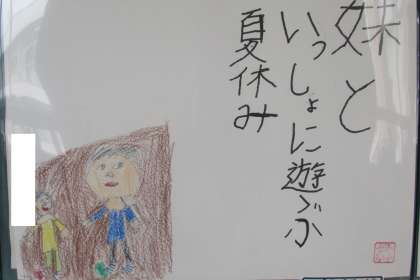 妹と
いっしょに遊ぶ
夏休み